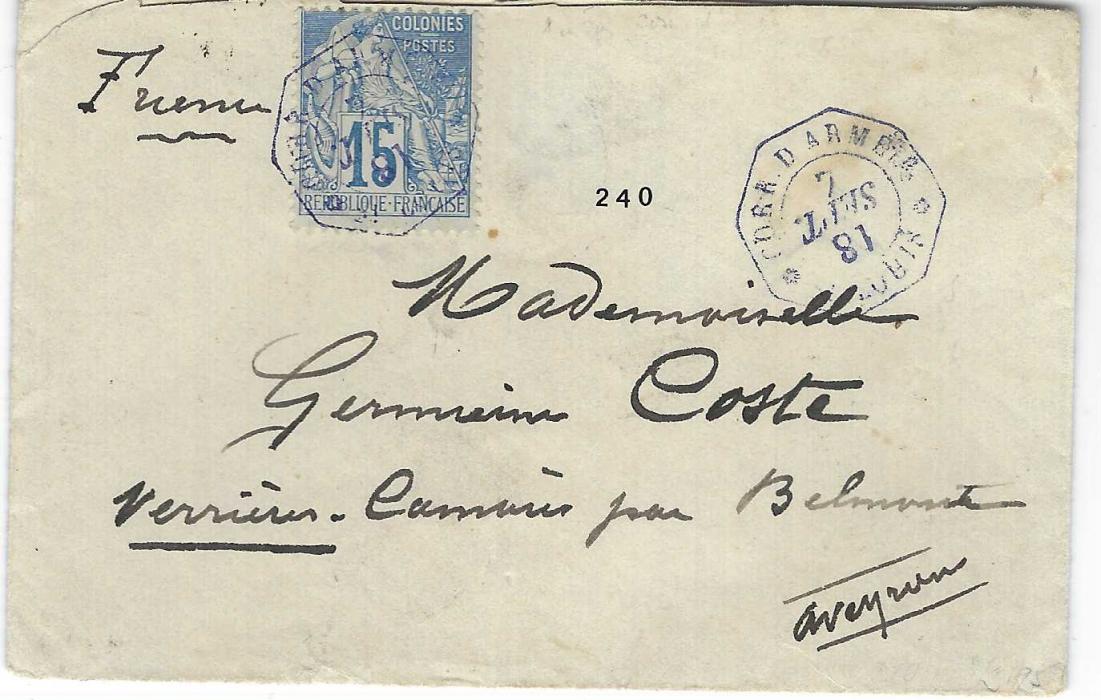 COLONIES
POSTES
15
REPUBLIQUE FRANCAISE
240
CORR. D ARMEES
7
SEPT
81
Mademoiselle
Germaine Coste
Verrières. Camarès par Belmont
Aveyron